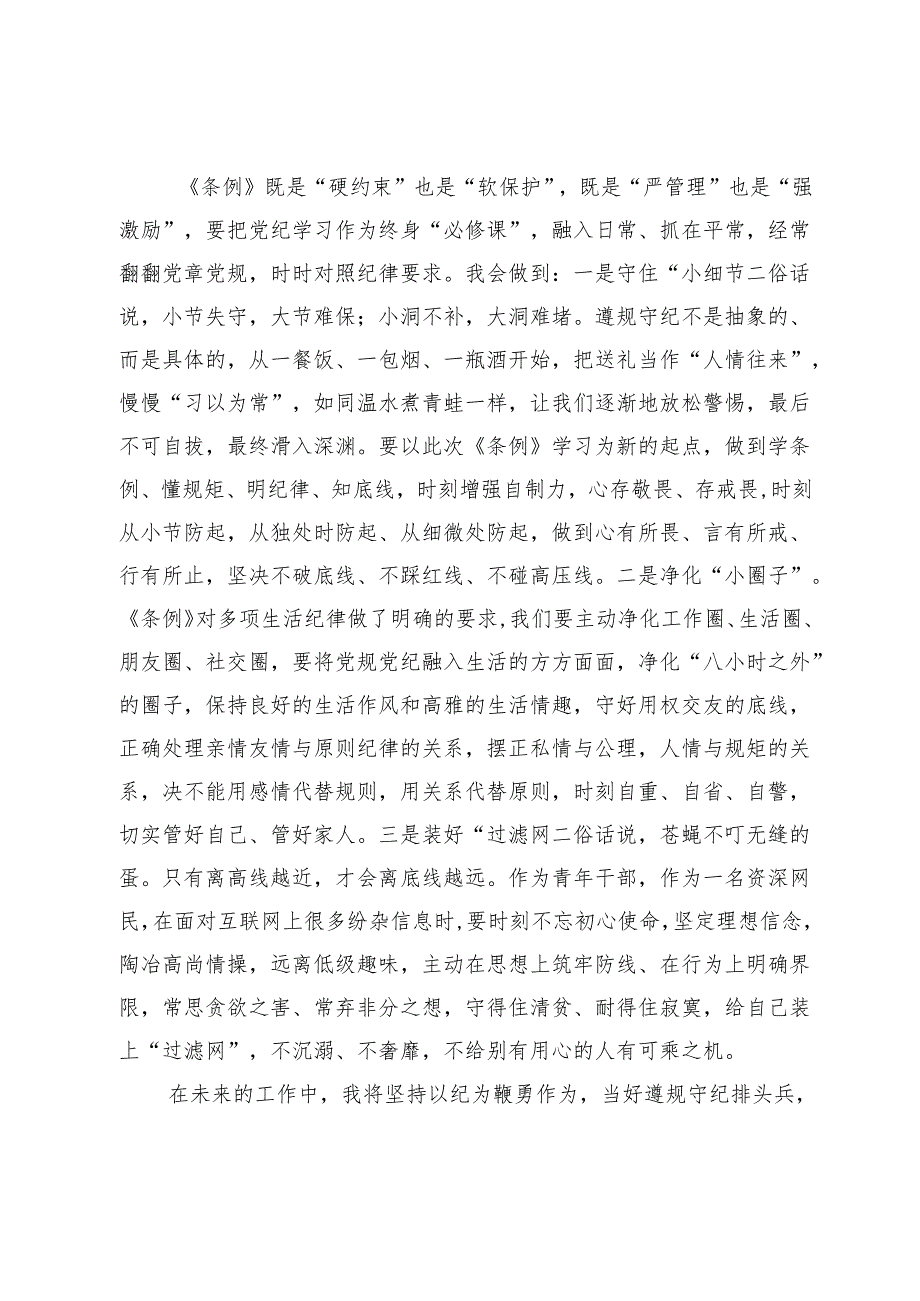 《条例》既是“硬约束”也是“软保护”，既是“严管理”也是“强
激励”，要把党纪学习作为终身“必修课”，融入日常、抓在平常，经常
翻翻党章党规，时时对照纪律要求。我会做到：一是守住“小细节二俗话
说，小节失守，大节难保；小洞不补，大洞难堵。遵规守纪不是抽象的、
而是具体的，从一餐饭、一包烟、一瓶酒开始，把送礼当作“人情往来”，
慢慢“习以为常”，如同温水煮青蛙一样，让我们逐渐地放松警惕，最后
不可自拔，最终滑入深渊。要以此次《条例》学习为新的起点，做到学条
例、懂规矩、明纪律、知底线，时刻增强自制力，心存敬畏、存戒畏,时刻
从小节防起，从独处时防起、从细微处防起，做到心有所畏、言有所戒、
行有所止，坚决不破底线、不踩红线、不碰高压线。二是净化“小圈子”。
《条例》对多项生活纪律做了明确的要求,我们要主动净化工作圈、生活圈、
朋友圈、社交圈，要将党规党纪融入生活的方方面面，净化“八小时之外”
的圈子，保持良好的生活作风和高雅的生活情趣，守好用权交友的底线，
正确处理亲情友情与原则纪律的关系，摆正私情与公理，人情与规矩的关
系，决不能用感情代替规则，用关系代替原则，时刻自重、自省、自警，
切实管好自己、管好家人。三是装好“过滤网二俗话说，苍蝇不叮无缝的
蛋。只有离高线越近，才会离底线越远。作为青年干部，作为一名资深网
民,在面对互联网上很多纷杂信息时,要时刻不忘初心使命,坚定理想信念，
陶冶高尚情操，远离低级趣味，主动在思想上筑牢防线、在行为上明确界
限，常思贪欲之害、常弃非分之想，守得住清贫、耐得住寂寞，给自己装
上“过滤网”，不沉溺、不奢靡，不给别有用心的人有可乘之机。
在未来的工作中，我将坚持以纪为鞭勇作为，当好遵规守纪排头兵，